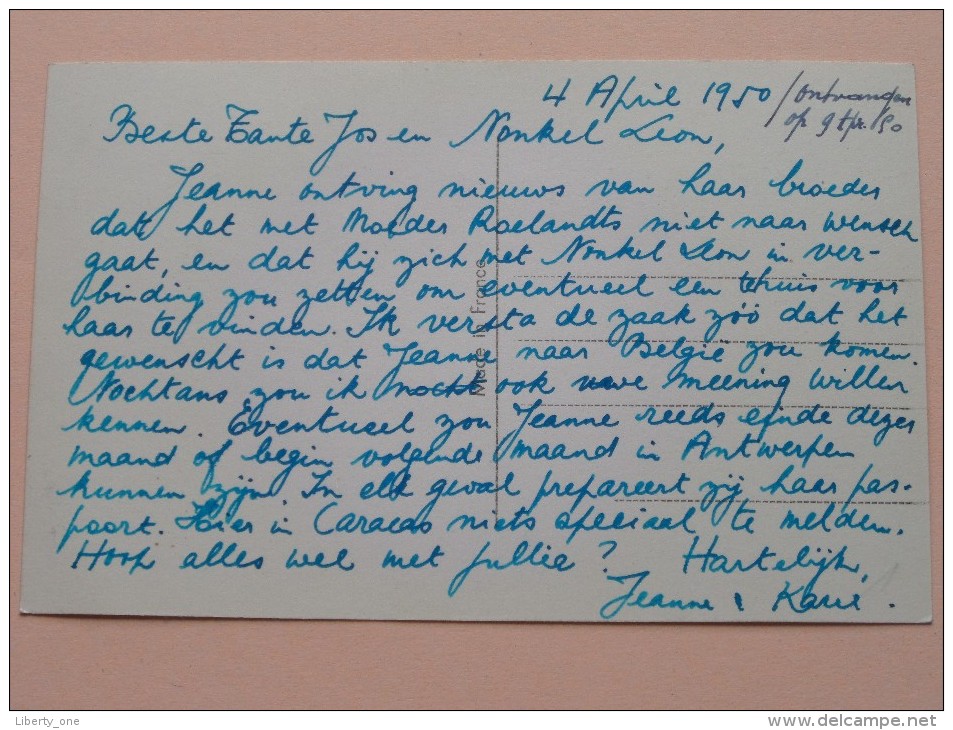 4 April 1950 / ontvangen
op 9 Apr. 50
Beste Tante Jos en Nonkel Leon,
Jeanne ontving nieuws van haar broeder
dat het met Moeder Roelandts niet naar wensch
gaat, en dat hij zich met Nonkel Leon in ver-
binding zou zetten om eventueel een tehuis voor
haar te vinden. Ik versta de zaak zóó dat het
gewenscht is dat Jeanne naar België zou komen.
Nochtans zou ik nocht ook uwe meening willen
kennen. Eventueel zou Jeanne reeds einde dezer
maand of begin volgende maand in Antwerpen
kunnen zijn. In elk geval prepareert zij haar pas-
poort. Hier in Caracas niets speciaal te melden.
Hoop alles wel met Jullie? Hartelijk,
Jeanne & Karel.
Made in France
Liberty_one
www.delcampe.net